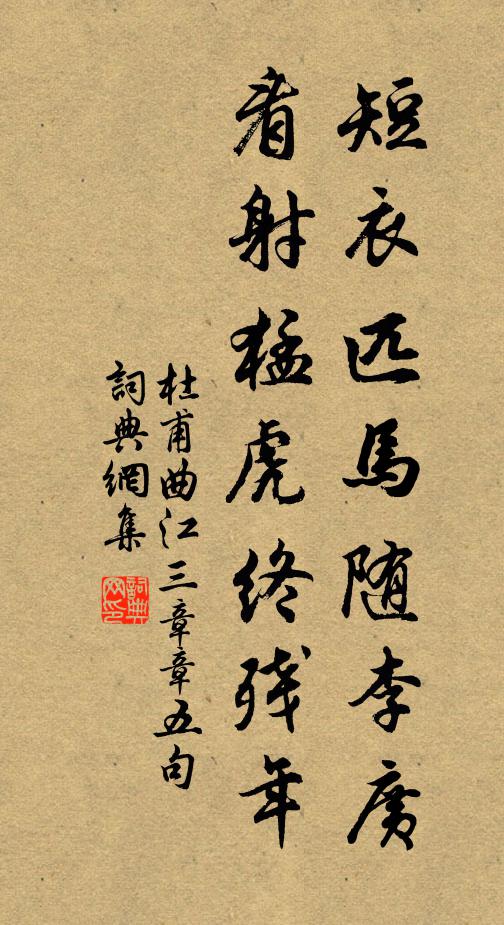 短衣匹馬随李廣
看射猛虎終残年
杜甫曲江三章章五句
詞典網集
詞典网印